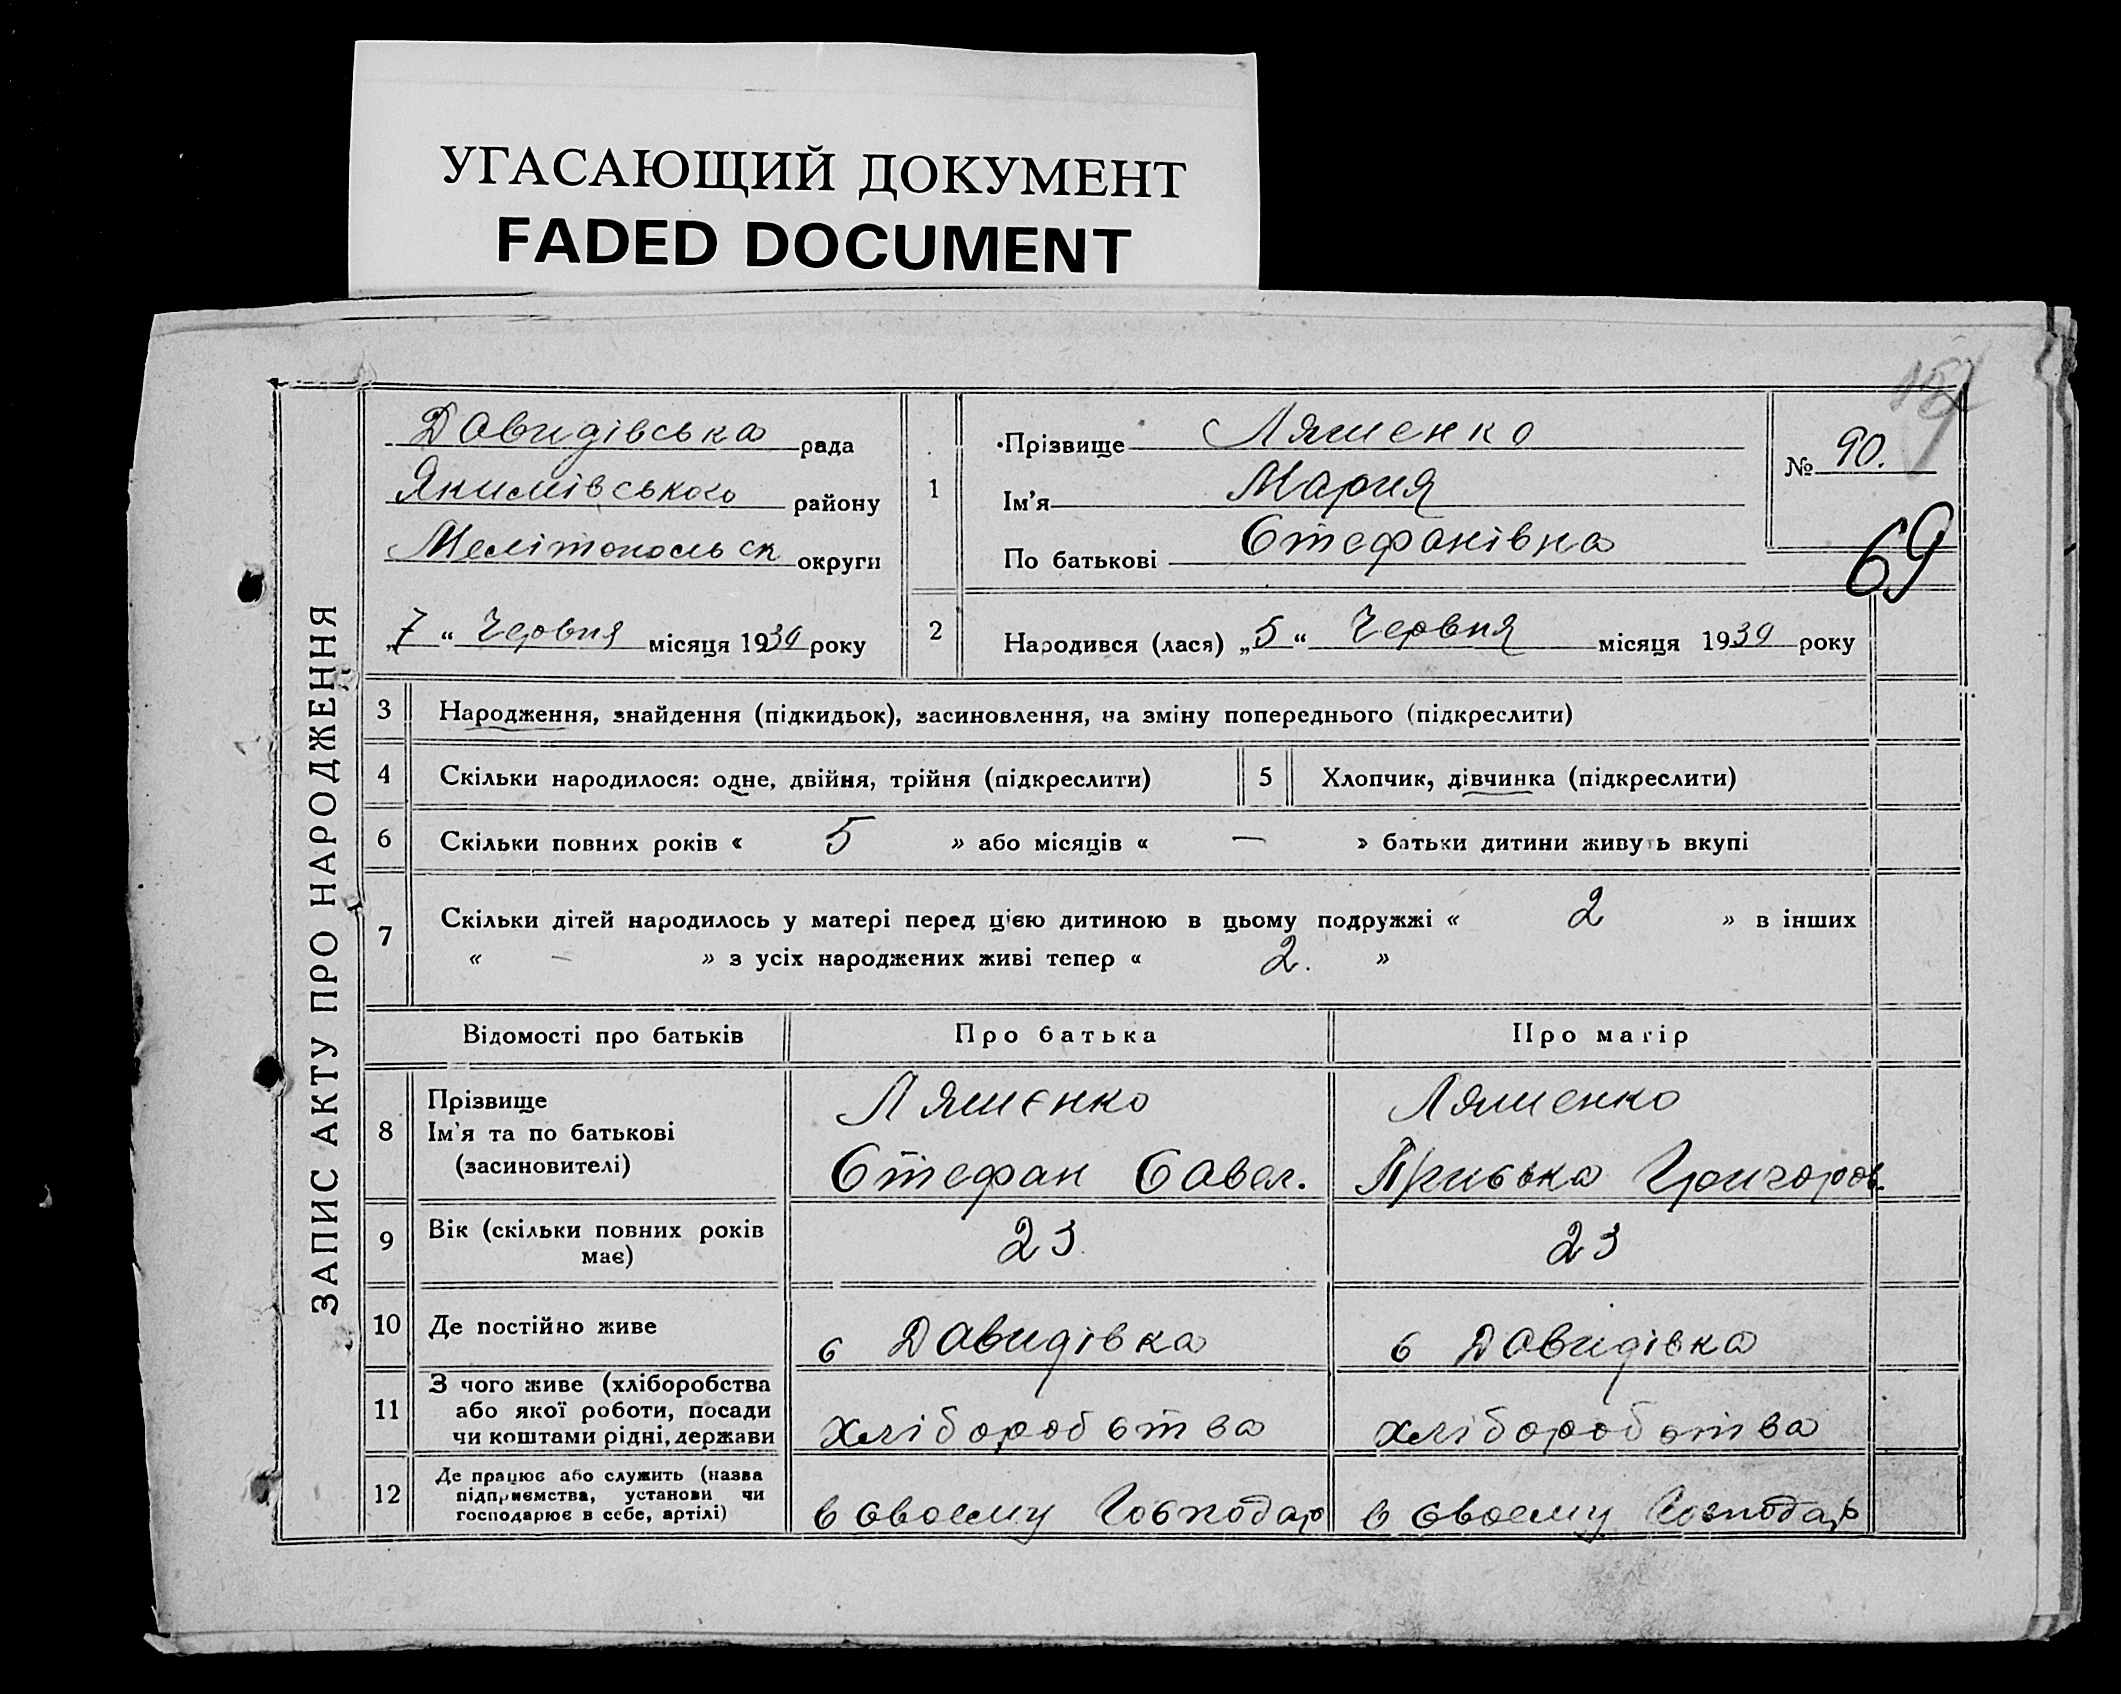 УГАСАЮЩИЙ ДОКУМЕНТ
FADED DOCUMENT
ЗАПИС АКТУ ПРО НАРОДЖЕННЯ
Давидівська рада
Якимівського району
Мелітопольськ округи
„7“ Червня місяця 1930 року
1
Прізвище Ляшенко
Ім'я Мария
По батькові Стефанівна
№ 90.
69
2 Народився (лася) „5“ Червня місяця 1930 року
3 Народження, знайдення (підкидьок), засиновлення, на зміну попереднього (підкреслити)
4 Скільки народилося: одне, двійня, трійня (підкреслити)
5 Хлопчик, дівчинка (підкреслити)
6 Скільки повних років « 5 » або місяців « — » батьки дитини живуть вкупі
7 Скільки дітей народилось у матері перед цією дитиною в цьому подружжі « 2 » в інших
« — » з усіх народжених живі тепер « 2. »
Відомості про батьків Про батька Про матір
8 Прізвище
Ім'я та по батькові
(засиновителі)
Ляшенко
Стефан Савел.
Ляшенко
Приська Григоров.
9 Вік (скільки повних років
має)
23
23
10 Де постійно живе
с Давидівка
с Давидівка
11 З чого живе (хліборобства
або якої роботи, посади
чи коштами рідні, держави
хліборобства
хліборобства
12 Де працює або служить (назва
підприємства, установи чи
господарює в себе, артілі)
в своему Господар
в своему Господар